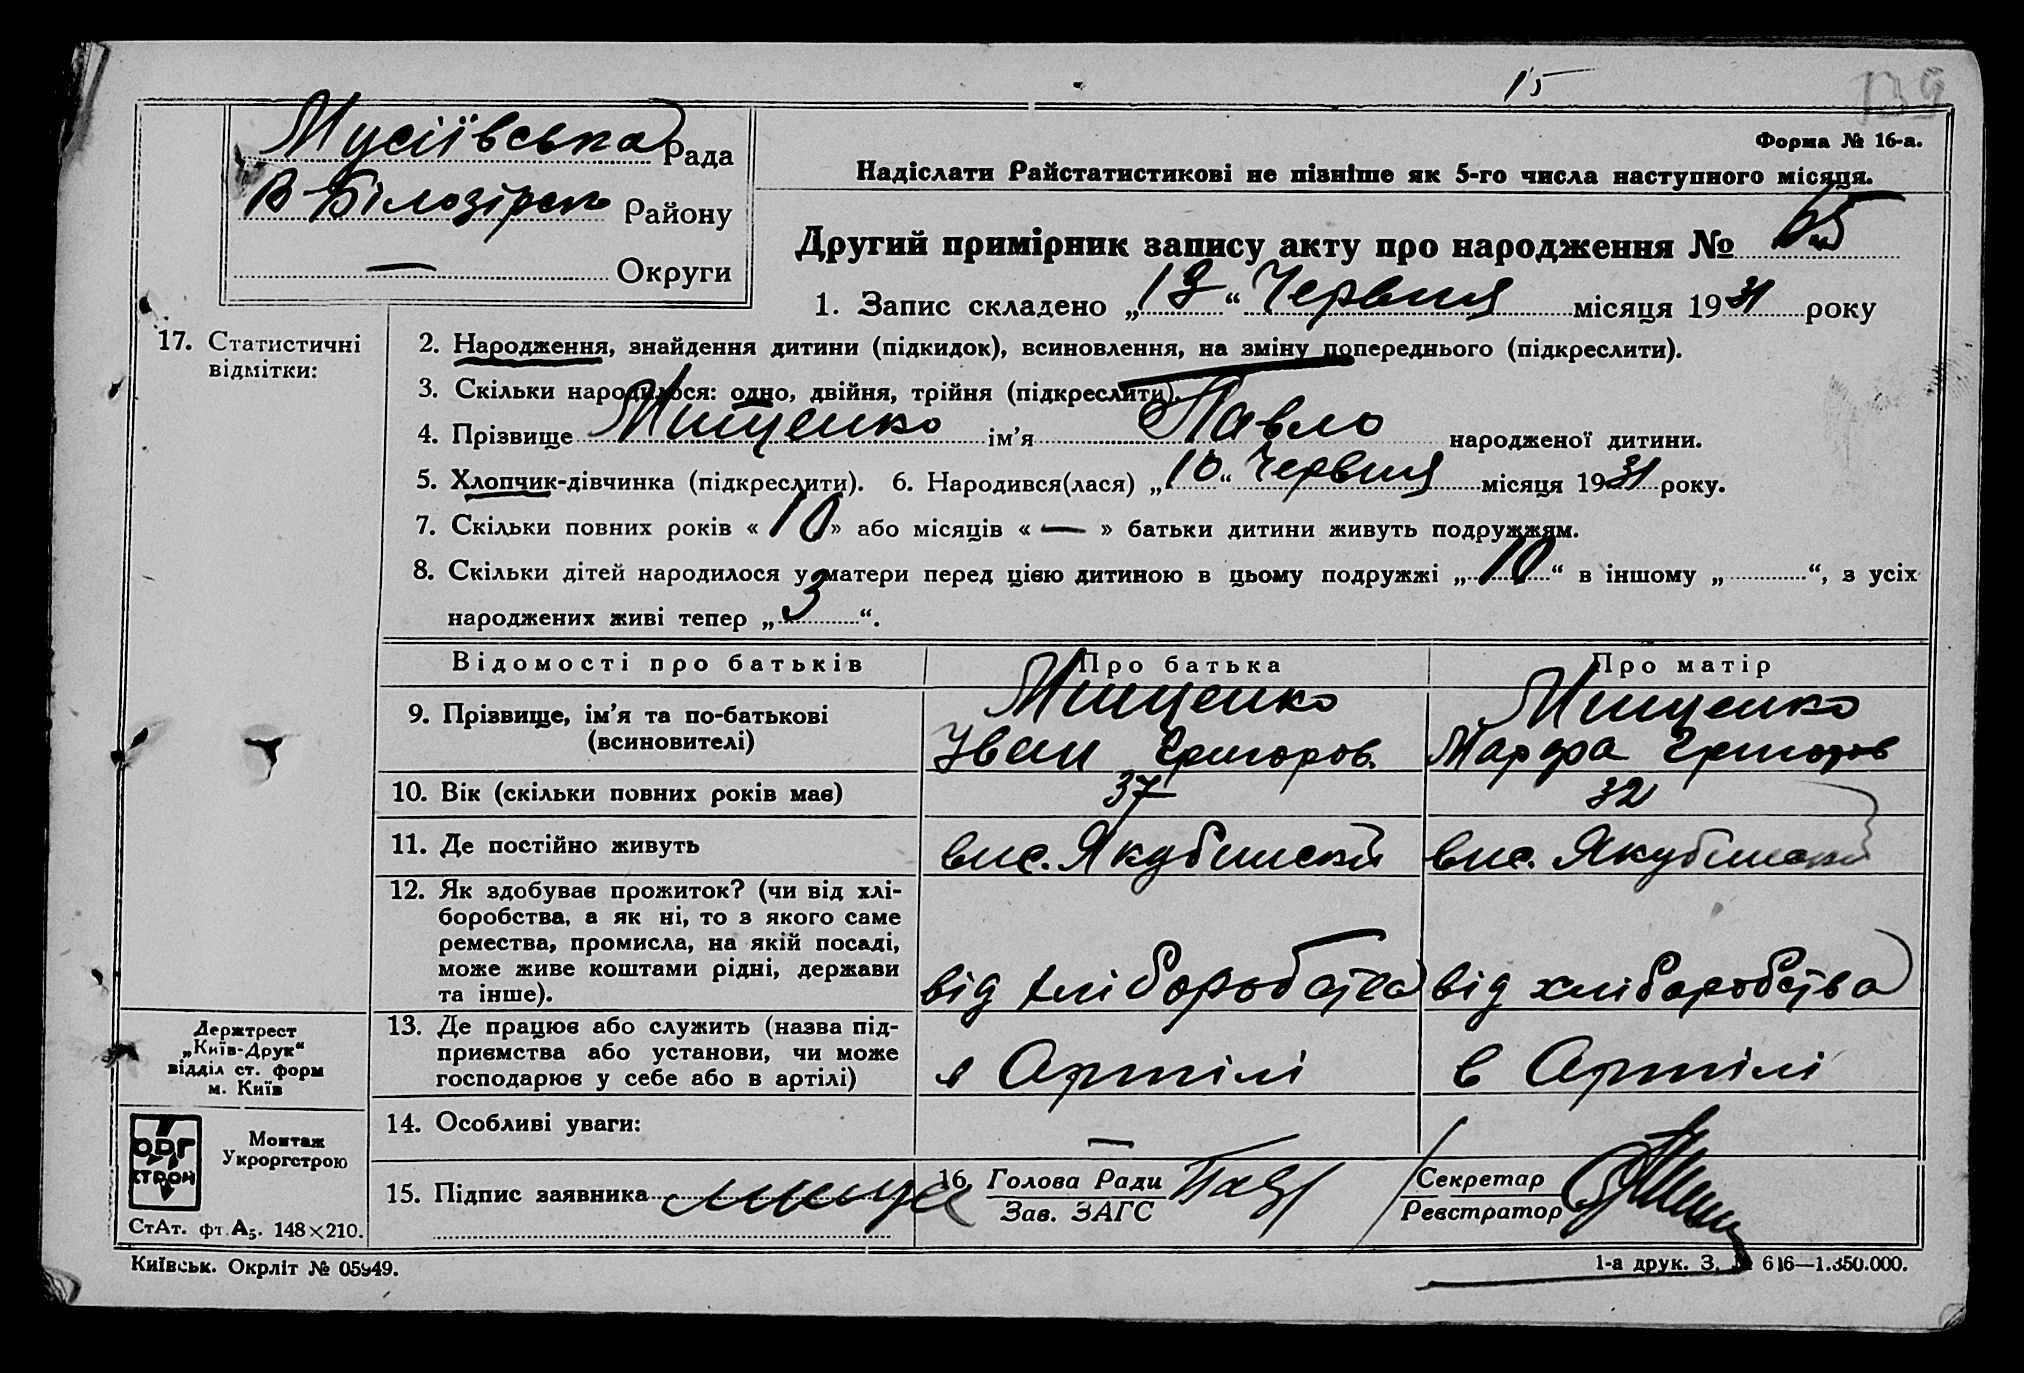 15
139
Мусіївська Рада
В-Білозірськ Району
— Округи
Форма № 16-а.
Надіслати Райстатистикові не пізніше як 5-го числа наступного місяця.
Другий примірник запису акту про народження №
1. Запис складено „13“ Червня місяця 1931 року
17. Статистичні
відмітки:
2. Народження, знайдення дитини (підкидок), всиновлення, на зміну попереднього (підкреслити).
3. Скільки народилося: одно, двійня, трійня (підкреслити).
4. Прізвище Мищенко ім’я Павло народженої дитини.
5. Хлопчик-дівчинка (підкреслити). 6. Народився(лася) „10“ Червня місяця 1931 року.
7. Скільки повних років «10» або місяців «—» батьки дитини живуть подружжям.
8. Скільки дітей народилося у матери перед цією дитиною в цьому подружжі „10“ в іншому „“, з усіх
народжених живі тепер „3“.
Відомості про батьків
Про батька
Про матір
9. Прізвище, ім’я та по-батькові
(всиновителі)
Мищенко
Іван Григоров.
Мищенко
Марфа Григоров
10. Вік (скільки повних років має)
37
32
11. Де постійно живуть
вис. Якубинский
вис. Якубинский
12. Як здобуває прожиток? (чи від хлі-
боробства, а як ні, то з якого саме
ремества, промисла, на якій посаді,
може живе коштами рідні, держави
та інше).
від хліборобства
від хліборобства
13. Де працює або служить (назва під-
приємства або установи, чи може
господарює у себе або в артілі)
в Артілі
в Артілі
14. Особливі уваги:
—
15. Підпис заявника Мище
16. Голова Ради
Зав. ЗАГС
Секретар
Реєстратор
Держтрест
„Київ-Друк“
відділ ст. форм
м. Київ
ОРГ
СТРОЙ
Монтаж
Укроргстрою
СтАт. фт. А5. 148×210.
Київськ. Окрліт № 05949.
1-а друк. З. № 616—1.350.000.